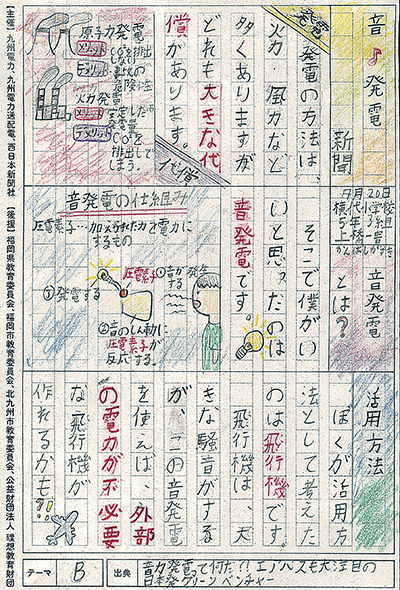 音♪発電
新聞
発電
発電の方法は、
火力・風力など
多くありますが
どれも大きな代
償があります。
代償
原子力発電
メリット
デメリット
火力発電
メリット
デメリット
音発電
とは?
そこで僕がい
いと思ったのは
音発電です。
音発電の仕組み
圧電素子…加えられた力を電力に
するもの
①音が発生
する
圧電素子
②音のしん動に
圧電素子が
反応する。
③発電する
活用方法
ぼくが活用方
法として考えた
のは飛行機です。
飛行機は、大
きな騒音がする
が、この音発電
を使えば、外部
の電力が不必要
な飛行機が
作れるかも?!
テーマ
B
出典
音力発電って何だ?!エアバスも大注目の
日本発グリーンベンチャー
【主催】九州電力、九州電力送配電、西日本新聞社 【後援】福岡県教育委員会、福岡市教育委員会、北九州市教育委員会、公益財団法人 理想教育財団